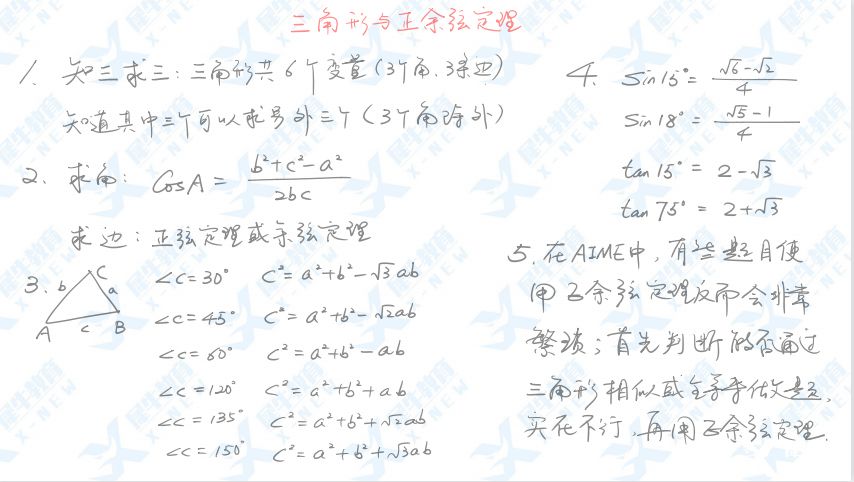 三角形与正余弦定理
1. 知三求三：三角形共6个变量（3个角、3条边）
知道其中三个可以求另外三个（3个角除外）
2. 求角： CosA = (b²+c²-a²)/(2bc)
求边：正弦定理或余弦定理
3. A b C a B c
∠C=30° C²=a²+b²-√3ab
∠C=45° C²=a²+b²-√2ab
∠C=60° C²=a²+b²-ab
∠C=120° C²=a²+b²+ab
∠C=135° C²=a²+b²+√2ab
∠C=150° C²=a²+b²+√3ab
4. Sin15°= (√6-√2)/4
Sin18°= (√5-1)/4
tan15°= 2-√3
tan75°= 2+√3
5. 在AIME中，有些题目使
用正余弦定理反而会非常
繁琐；首先判断能否通过
三角形相似或全等来做题，
实在不行，再用正余弦定理.
犀牛教育
X-NEW